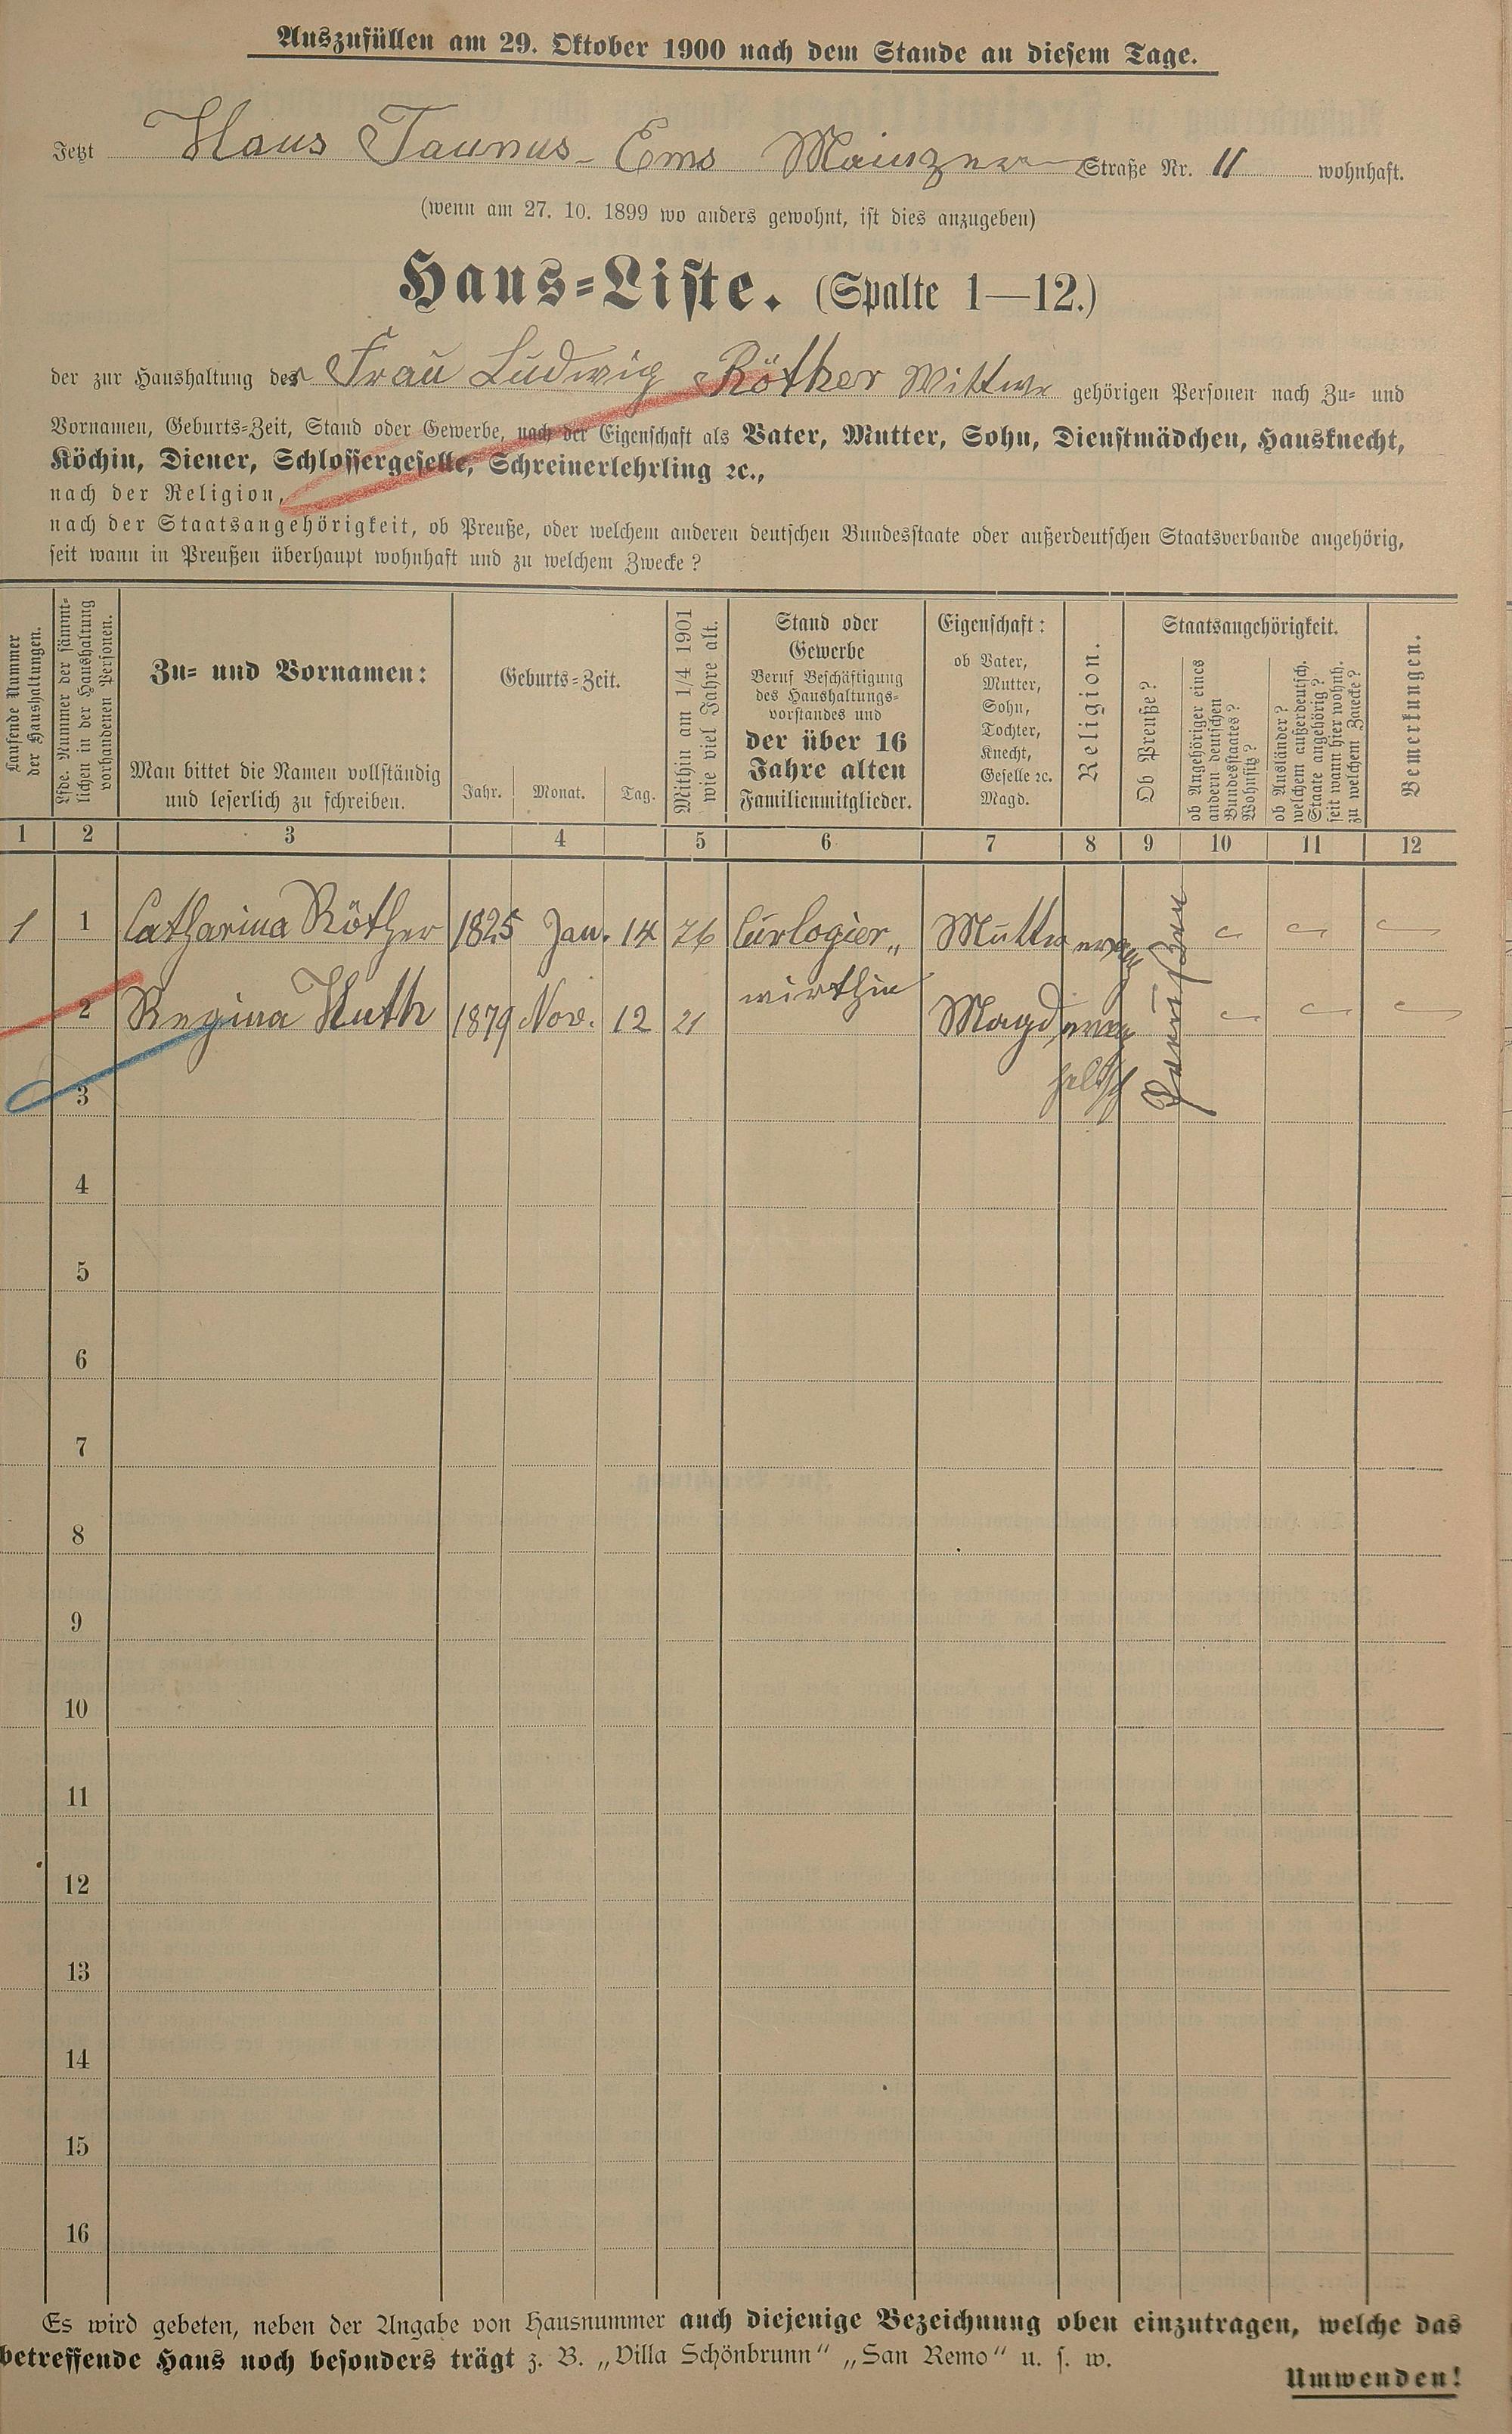 Auszufüllen am 29. Oktober 1900 nach dem Stande an diesem Tage.
Jetzt Haus Taunus - Ems Mainzer Straße Nr. 11 wohnhaft.
(wenn am 27. 10. 1899 wo anders gewohnt, ist dies anzugeben)
Haus=Liste. (Spalte 1—12.)
der zur Haushaltung der Frau Ludwig Röther Wittwe gehörigen Personen nach Zu= und
Vornamen, Geburts=Zeit, Stand oder Gewerbe, nach der Eigenschaft als Vater, Mutter, Sohn, Dienstmädchen, Hausknecht,
Köchin, Diener, Schlossergeselle, Schreinerlehrling ꝛc.,
nach der Religion,
nach der Staatsangehörigkeit, ob Preuße, oder welchem anderen deutschen Bundesstaate oder außerdeutschen Staatsverbande angehörig,
seit wann in Preußen überhaupt wohnhaft und zu welchem Zwecke?
Laufende Nummer
der Haushaltungen.
Lfde. Nummer der sämmt=
lichen in der Haushaltung
vorhandenen Personen.
Zu= und Vornamen:
Man bittet die Namen vollständig
und leserlich zu schreiben.
Geburts=Zeit.
Jahr. Monat. Tag.
Mithin am 1/4 1901
wie viel Jahre alt.
Stand oder
Gewerbe
Beruf Beschäftigung
des Haushaltungs=
vorstandes und
der über 16
Jahre alten
Familienmitglieder.
Eigenschaft:
ob Vater,
Mutter,
Sohn,
Tochter,
Knecht,
Geselle ꝛc.
Magd.
Religion.
Staatsangehörigkeit.
Ob Preuße?
ob Angehöriger eines
andern deutschen
Bundesstaates?
Wohnsitz?
ob Ausländer?
welchem außerdeutsch.
Staate angehörig?
seit wann hier wohnh.
zu welchem Zwecke?
Bemerkungen.
1 2 3 4 5 6 7 8 9 10 11 12
1 1 Catharina Röther 1825 Jan. 14 76 Curlogier„ Mutter evang
wirthin
2 Regina Huth 1879 Nov. 12 21 Magd evang
3
4
5
6
7
8
9
10
11
12
13
14
15
16
Es wird gebeten, neben der Angabe von Hausnummer auch diejenige Bezeichnung oben einzutragen, welche das
betreffende Haus noch besonders trägt z. B. „Villa Schönbrunn“ „San Remo“ u. s. w.
Umwenden!